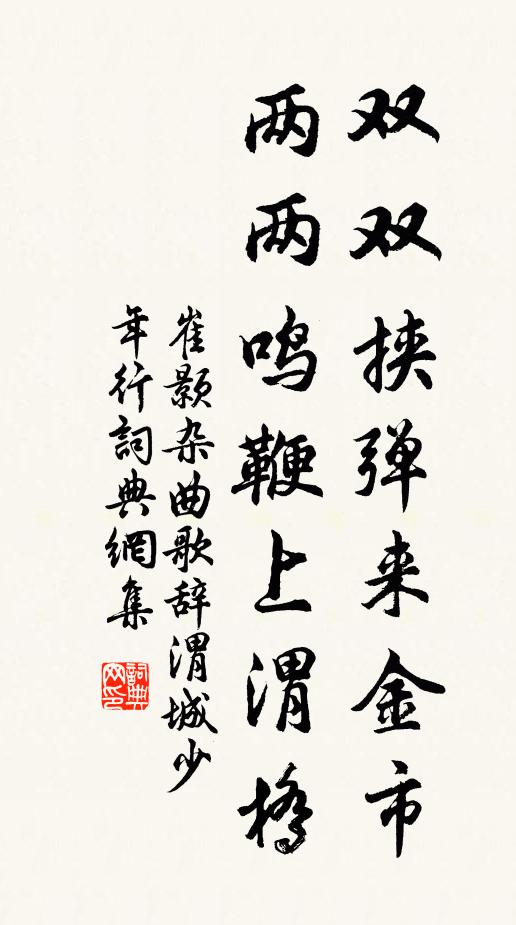 双双挟弹来金市
两两鸣鞭上渭桥
崔颢杂曲歌辞渭城少
年行词典網集
詞典
网印